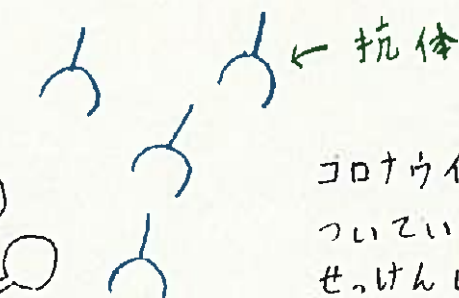 抗体
コロナウイ
ついてい
せっけん